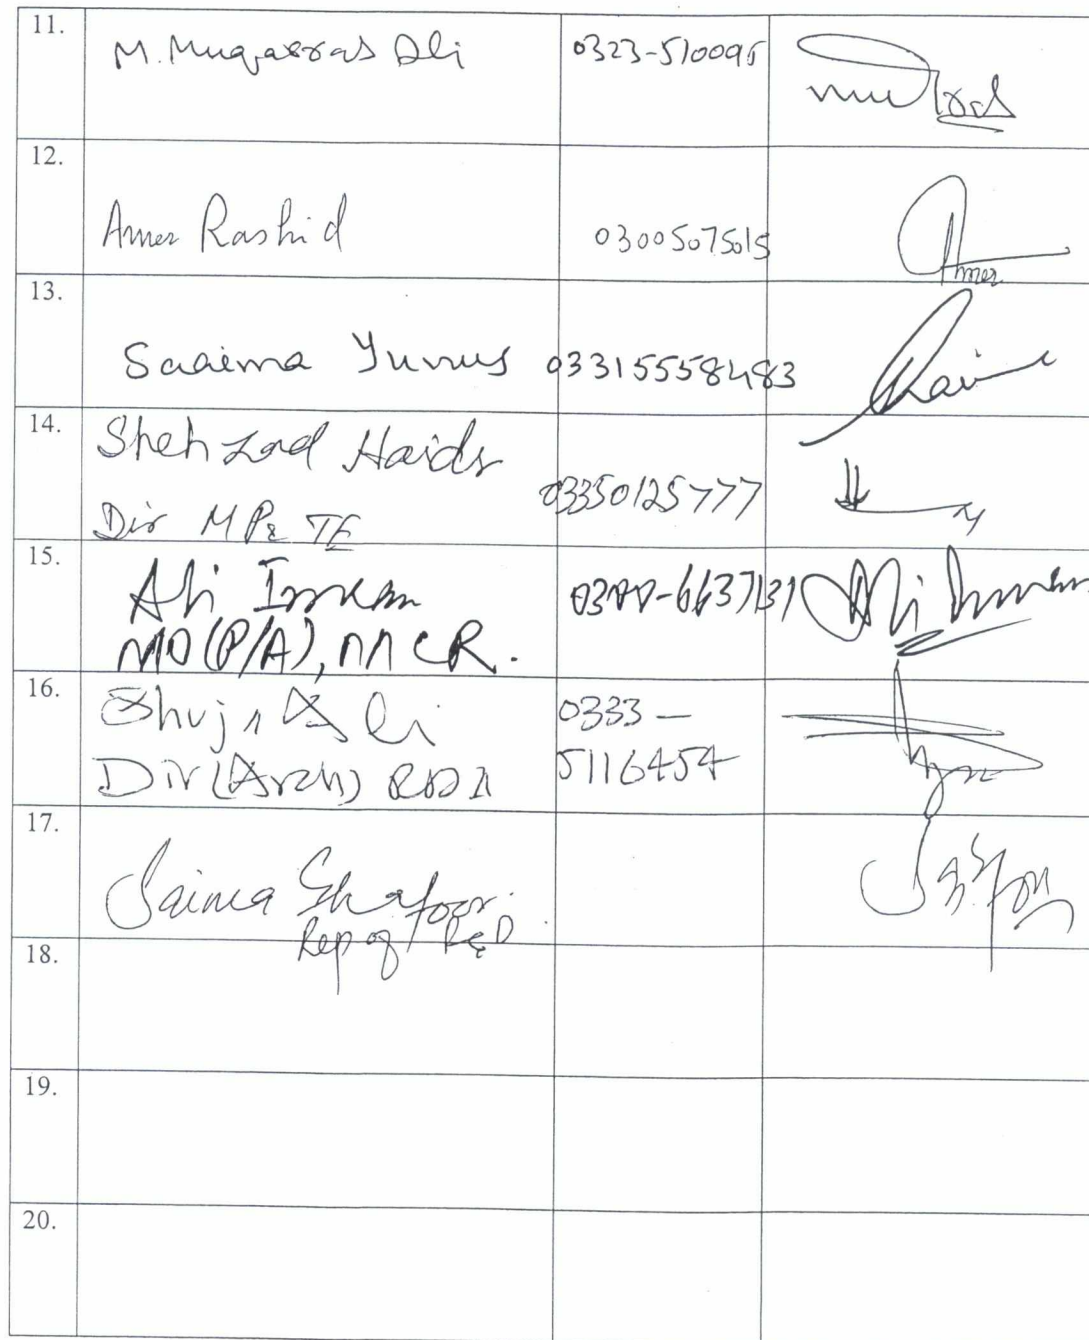 11. M. Muqarras Ali 0323-510095
12.
Amer Rashid 03005075015
Amer
13.
Saaima Yunus 033155558483
14. Shehzad Haider
03350125777
Dir MP& TE
15. Ali Imran 0300-6637131 Ali Imran
MO(P/A),
16. Shuja Ali 0333-
Dir(Arch) RDA 5116454
17.
Saima Ghafoor
Rep of P&D
18.
19.
20.